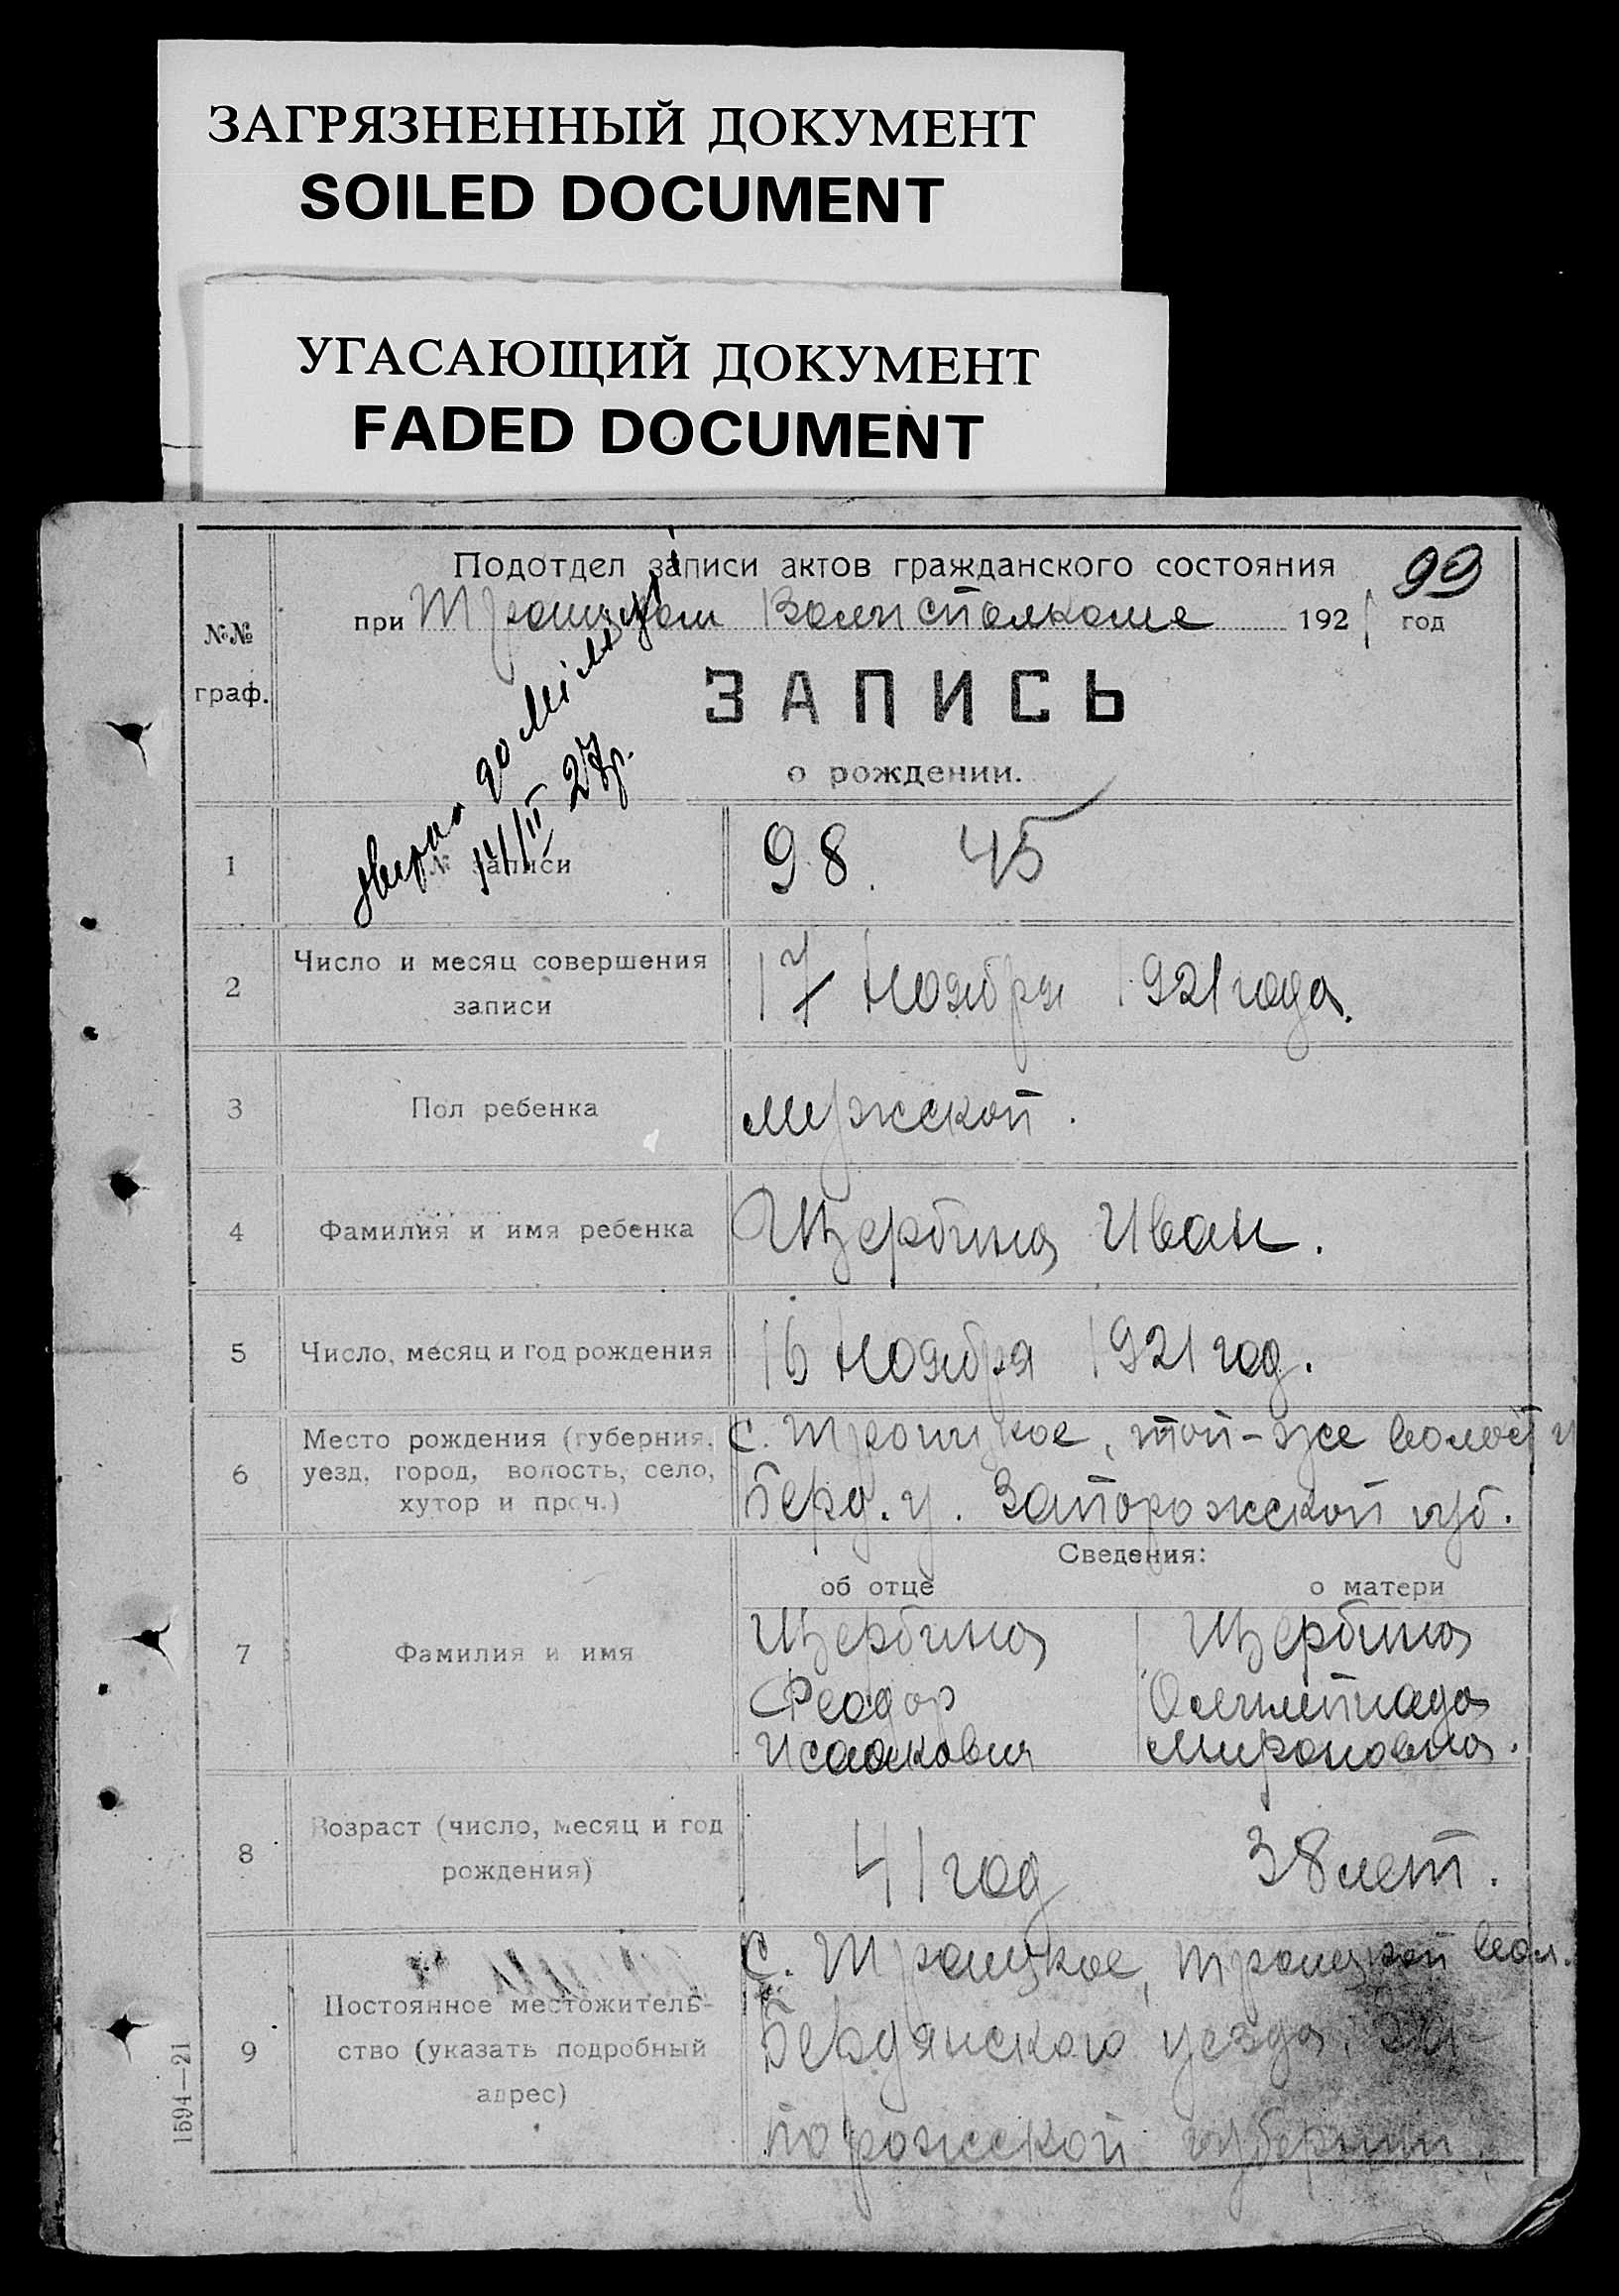 ЗАГРЯЗНЕННЫЙ ДОКУМЕНТ
SOILED DOCUMENT
УГАСАЮЩИЙ ДОКУМЕНТ
FADED DOCUMENT
99
Подотдел записи актов гражданского состояния
при Троицком Волисполкоме 1921 год
№№
граф.
ЗАПИСЬ
о рождении.
14/II 27р.
1 № записи 98. 45
2 Число и месяц совершения
записи
17 Ноября 1921 года.
3 Пол ребенка мужской.
4 Фамилия и имя ребенка Щербина Иван.
5 Число, месяц и год рождения 16 Ноября 1921 год.
6 Место рождения (губерния,
уезд, город, волость, село,
хутор и проч.)
с. Троицкое, той-же волости
Берд. у. Запорожской губ.
Сведения:
об отце о матери
7 Фамилия и имя
Щербина Щербина
Феодор Олимпиада
Исаакович Мироновна.
8 Возраст (число, месяц и год
рождения)
41 год 38 лет.
9 Постоянное местожитель-
ство (указать подробный
адрес)
С. Троицкое, Троицкой вол.
Бердянского уезда, За-
порожской губернии.
1594—21